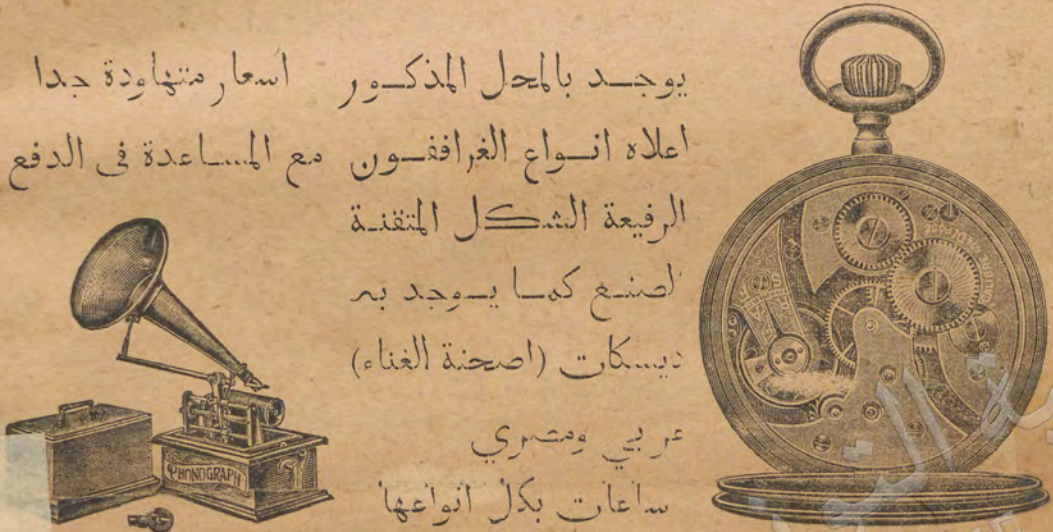 يوجد بالمحل المذكور
اعلاه انواع الغراففون
الرفيعة الشكل المتقنة
الصنع كما يوجد به
ديسكات (اصحنة الغناء)
عربي ومصري
ساعات بكل انواعها
اسعار متهاودة جدا
مع المساعدة فى الدفع
PHONOGRAPH